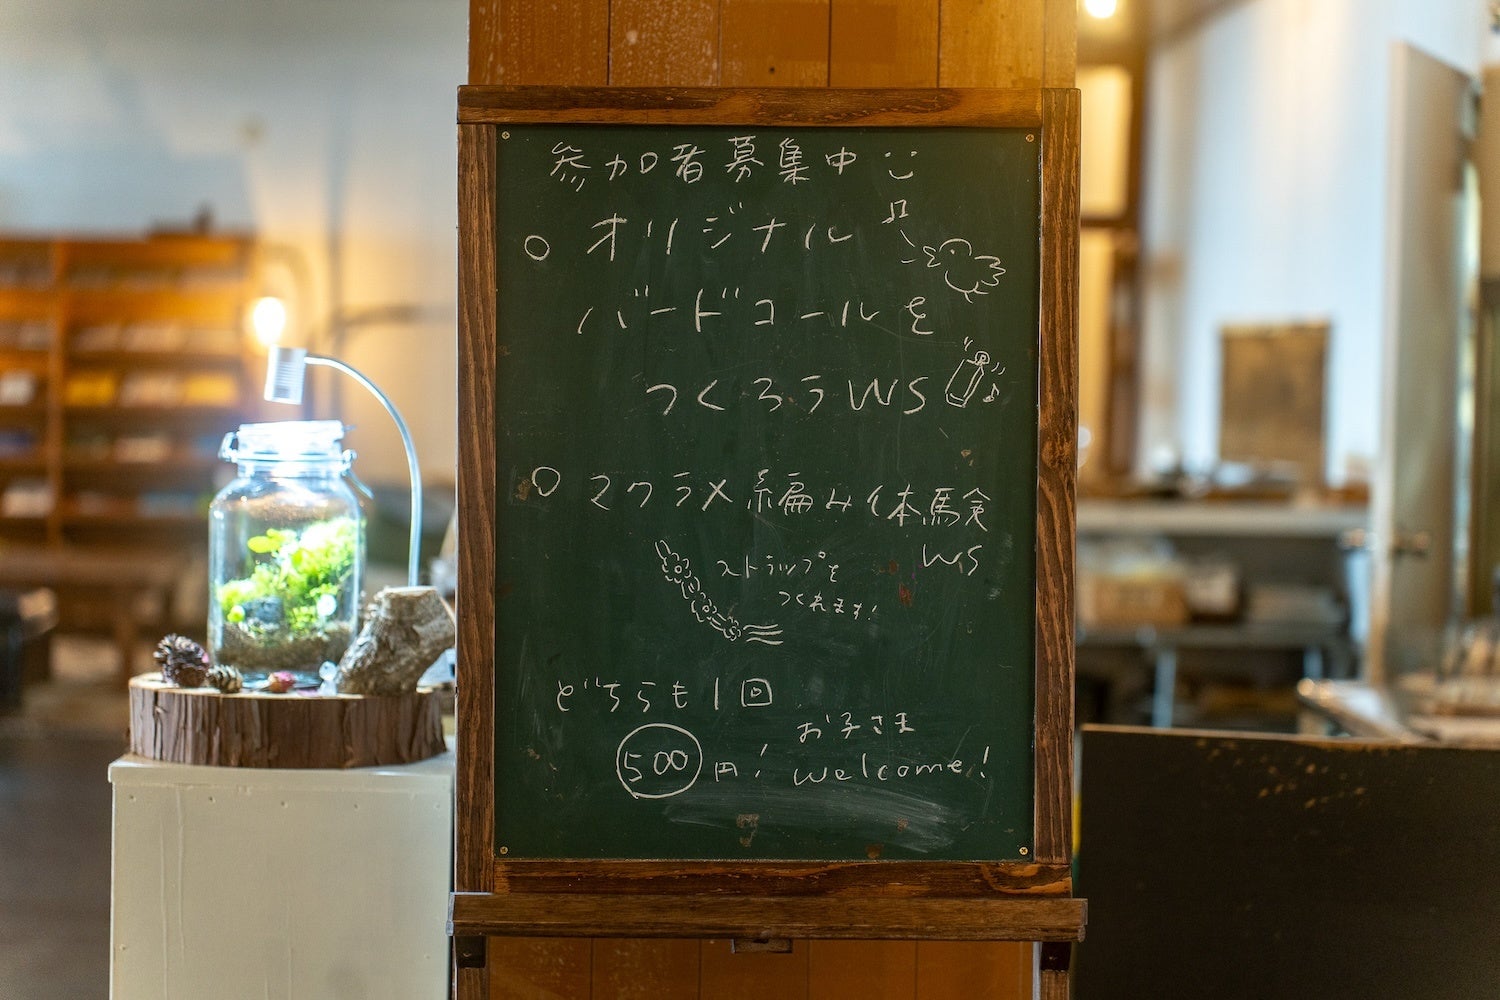 参加者募集中
○ オリジナル
バードコールを
つくろうWS
○ マクラメ糸編み体験
WS
ストラップを
つくれます!
どちらも1回
500円!
お子さま
welcome!